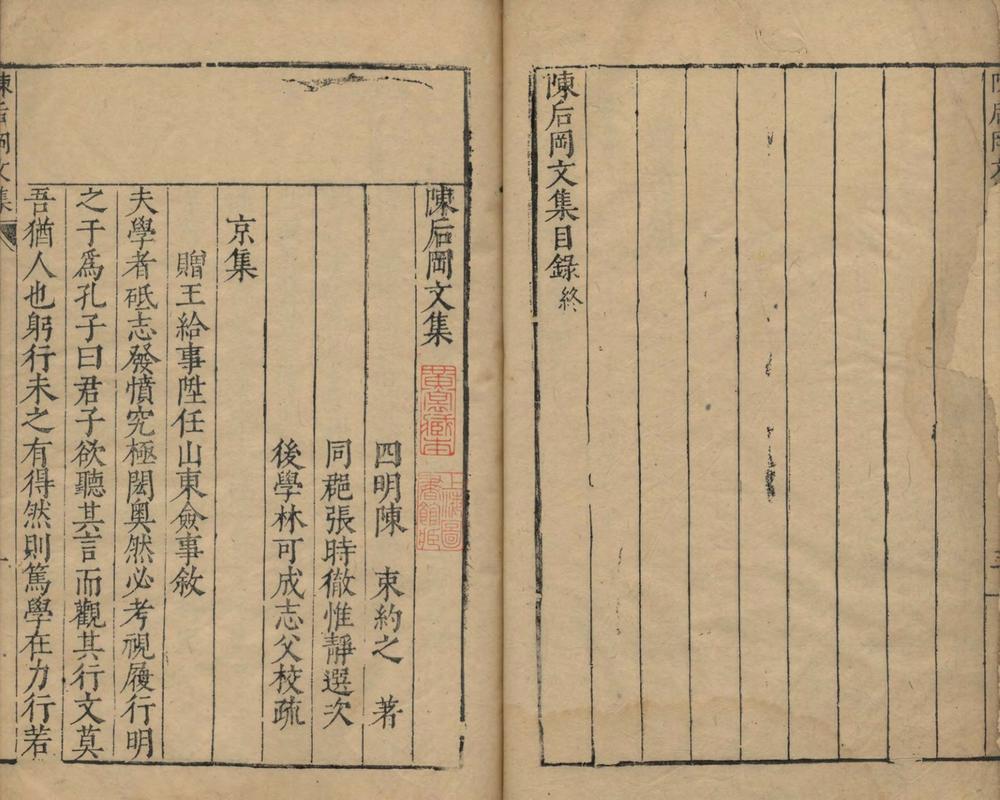 陳后岡文集目錄終
陳后岡文集
黄裳藏本
上海圖
書館藏
四明陳 束約之 著
同郡張時徹惟靜選次
後學林可成志父校疏
京集
贈王給事陞任山東僉事敘
夫學者砥志發憤究極閎奧然必考視履行明
之于爲孔子曰君子欲聽其言而觀其行文莫
吾猶人也躬行未之有得然則篤學在力行若
陳后岡文集